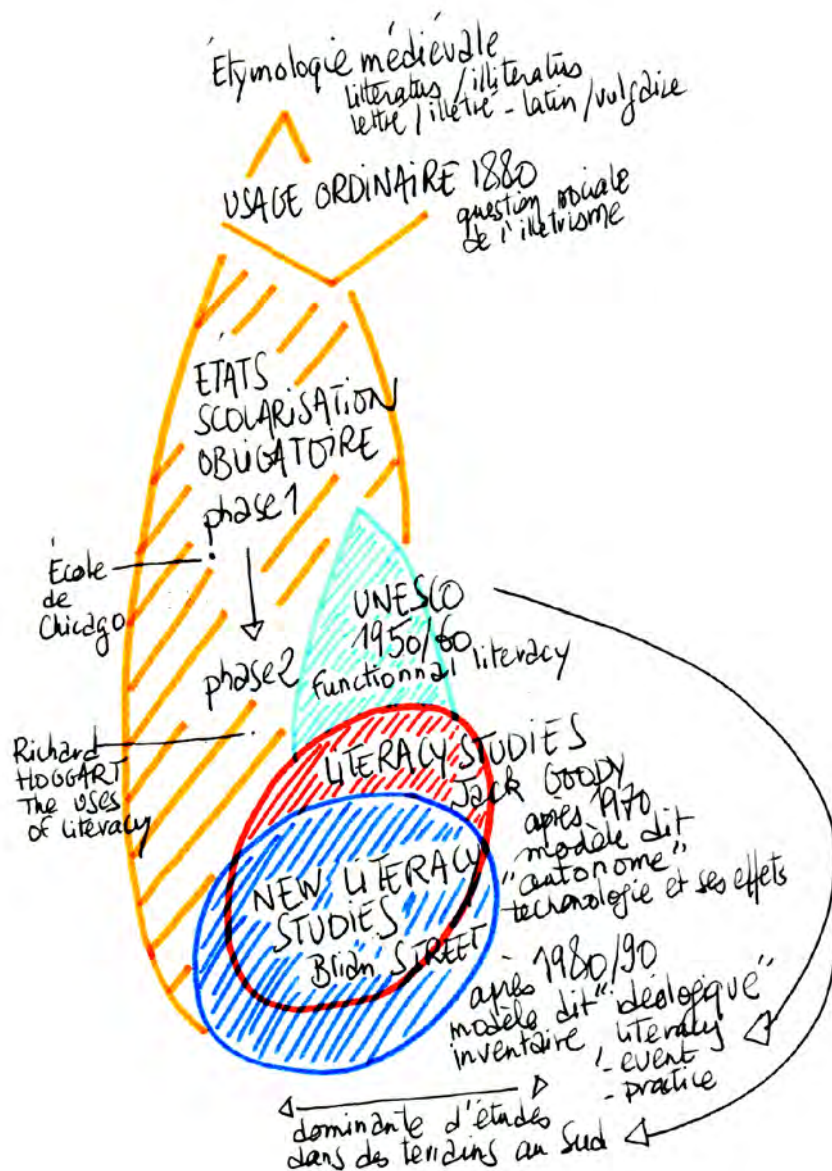 Étymologie médiévale
litteratus / illiteratus
lettré / illétré - latin / vulgaire
USAGE ORDINAIRE 1880
question sociale
de l'illetrisme
ÉTATS
SCOLARISATION
OBLIGATOIRE
phase 1
École
de
Chicago
UNESCO
1950/60
functionnal literacy
phase 2
Richard
HOGGART
The uses
of literacy
LITERACY STUDIES
Jack GOODY
après 1970
modèle dit
"autonome"
technologie et ses effets
NEW LITERACY
STUDIES
Brian STREET
après 1980/90
modèle dit "idéologique"
inventaire literacy
- event
- practice
dominante d'études
dans des terrains au Sud